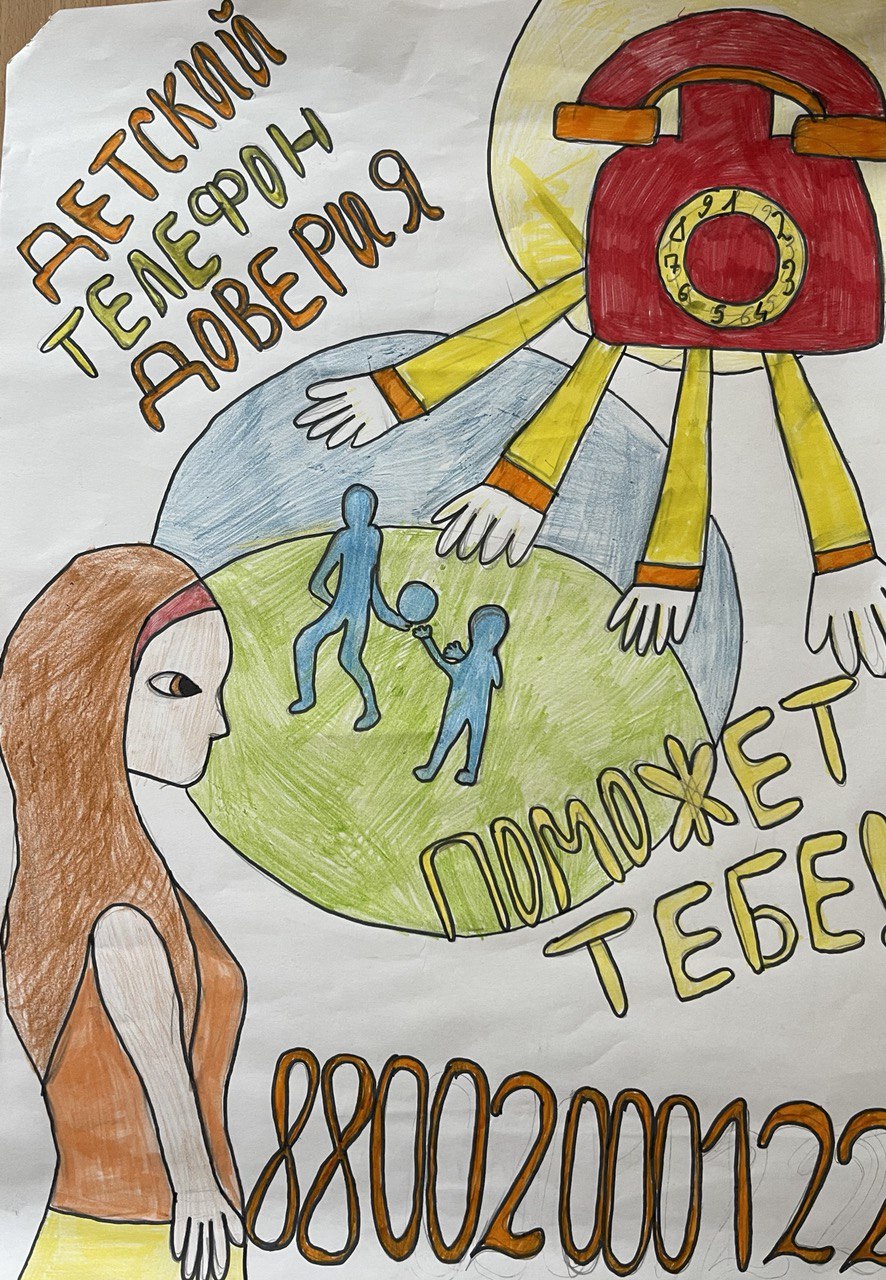 ДЕТСКИЙ
ТЕЛЕФОН
ДОВЕРИЯ
1 2 3 4 5 6 7 8 9
ПОМОЖЕТ
ТЕБЕ!
88002000122